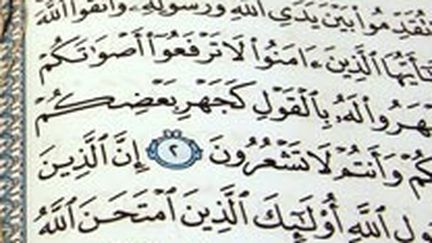 تُقَدِّمُوا۟ بَيْنَ يَدَىِ ٱللَّهِ وَرَسُولِهِۦ وَٱتَّقُوا۟ ٱللَّهَ
يَٰٓأَيُّهَا ٱلَّذِينَ ءَامَنُوا۟ لَا تَرْفَعُوٓا۟ أَصْوَٰتَكُمْ
تَجْهَرُوا۟ لَهُۥ بِٱلْقَوْلِ كَجَهْرِ بَعْضِكُمْ
كُمْ وَأَنتُمْ لَا تَشْعُرُونَ ٢ إِنَّ ٱلَّذِينَ
ولِ ٱللَّهِ أُو۟لَٰٓئِكَ ٱلَّذِينَ ٱمْتَحَنَ ٱللَّهُ